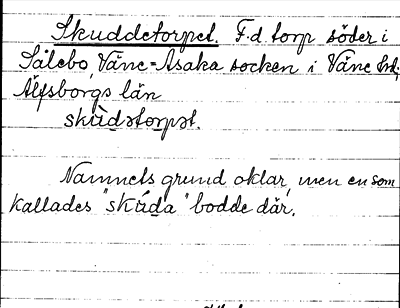 Skuddetorpet. F.d. torp söder i
Sålebo, Väne-Åsaka socken i Väne hd,
Älvsborgs län
skùdətorpət.
Namnets grund oklar, men en som
kallades "skúda" bodde där.